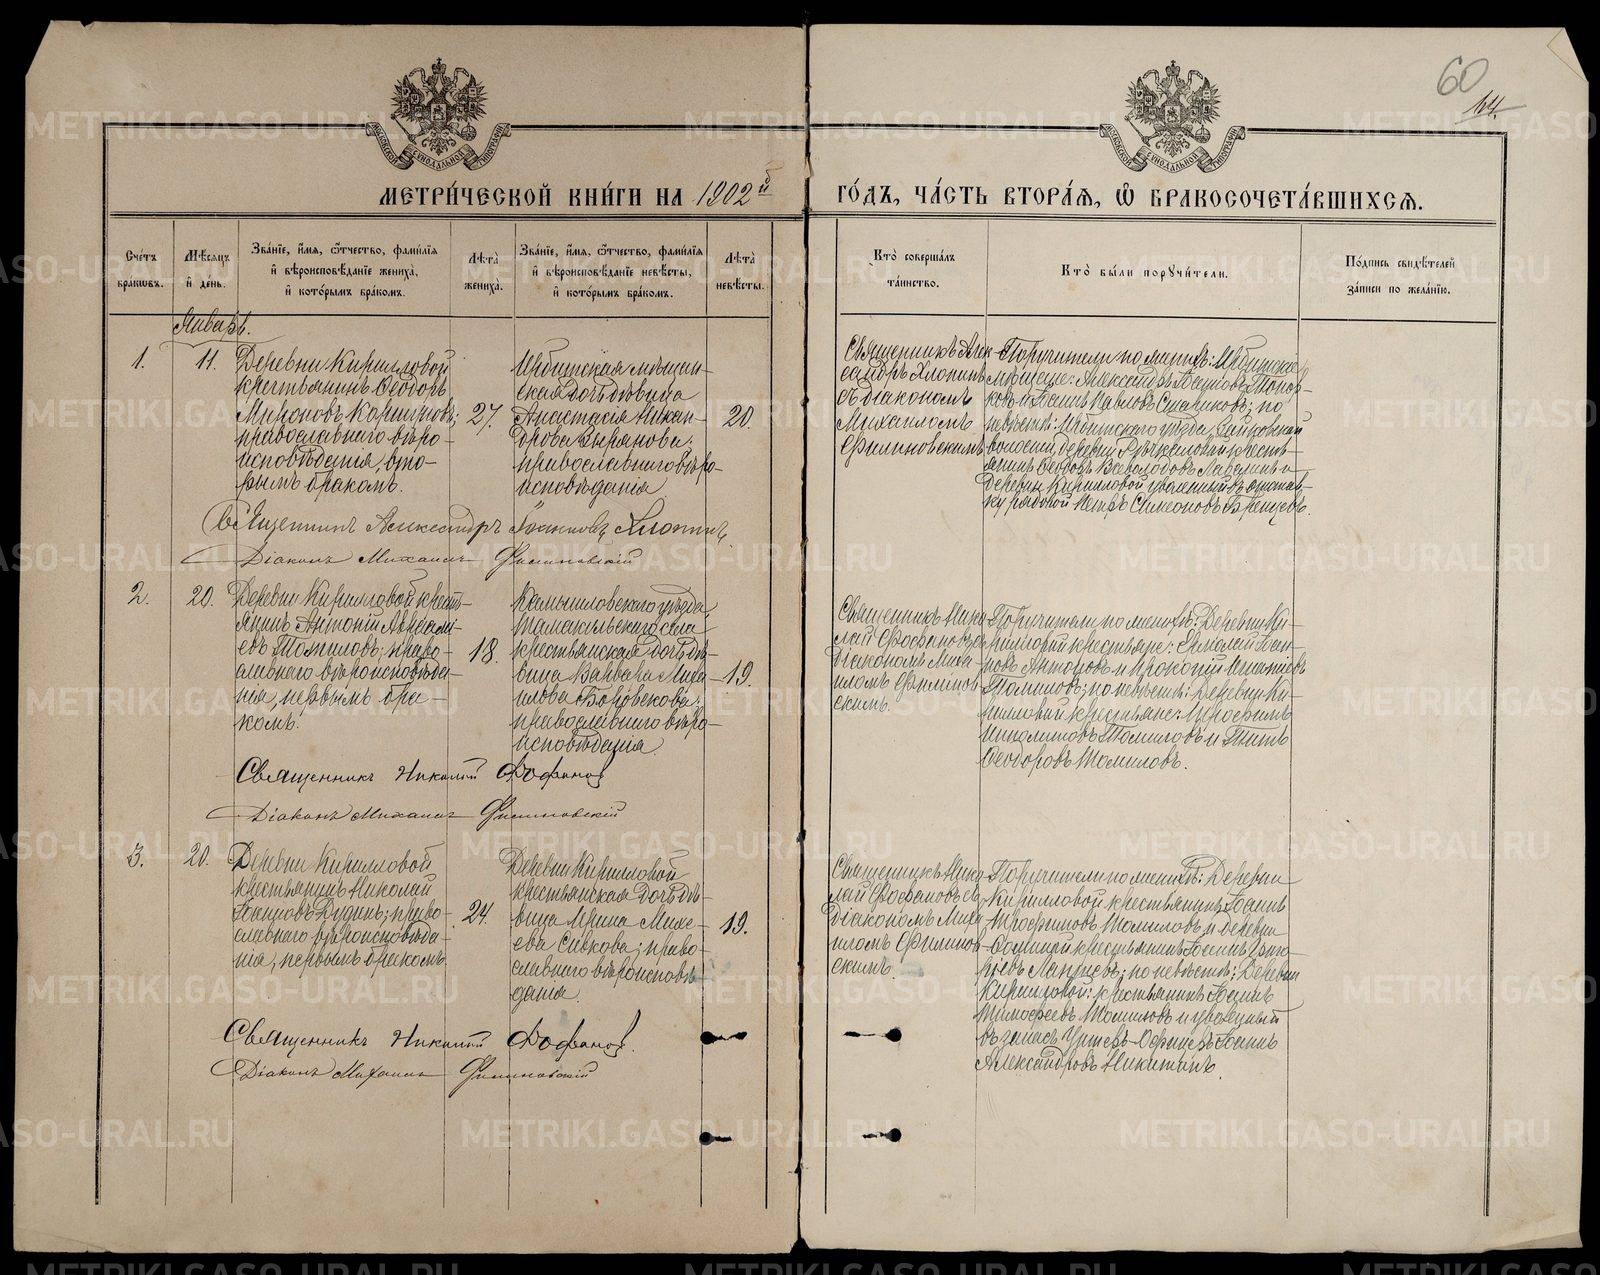 60
64.
МОСКОВСКОЙ СѴНОДАЛЬНОЙ ТИПОГРАФИИ
МОСКОВСКОЙ СѴНОДАЛЬНОЙ ТИПОГРАФИИ
МЕТРИ́ЧЕСКОЙ КНИ́ГИ НА 1902й
ГО́ДЪ, ЧА́СТЬ ВТОРА́Я, Ѽ БРАКОСОЧЕТА́ВШИХСЯ.
Сче́тъ бра́кѡвъ.
Мѣ́сяцъ и҆ де́нь.
Зва́нїе, и҆́мя, ѻ҆́тчество, фами́лїя и҆ вѣроисповѣ́данїе жениха̀, и҆ кото́рымъ бра́комъ.
Лѣ́та жениха̀.
Зва́нїе, и҆́мя, ѻ҆́тчество, фами́лїя и҆ вѣроисповѣ́данїе невѣ́сты, и҆ кото́рымъ бра́комъ.
Лѣ́та невѣ́сты.
Кто̀ соверша́лъ та́инство.
Кто̀ бы́ли порꙋчи́тели.
По́дпись свидѣ́телей за́писи по жела́нїю.
Январь.
1.
11.
Деревни Кирилловой
крестьянинъ Ѳеодоръ
Мироновъ
православнаго вѣро-
исповѣданія, вто-
рымъ бракомъ.
27.
Ирбитская мѣщан-
ская дочь дѣвица
Анастасія Никан-
дрова Зырянова;
православнаго вѣро-
исповѣданія.
20.
Священникъ Алек-
сандръ Хлопинъ
съ діакономъ
Михаиломъ
Филиновскимъ
Поручители по женихѣ: Ирбитскіе
мѣщане: Александръ
и Іоаннъ Павловъ по
невѣстѣ: Ирбитскаго уѣзда, Зайковской
волости, деревни кресть-
янинъ Ѳеодоръ и
деревни Кирилловой уволенный въ отстав-
ку рядовой Петръ Симеоновъ
Священникъ Александръ Іоанновъ Хлопинъ.
Діаконъ Михаилъ Филиновскій
2.
20.
Деревни Кирилловой кресть-
янинъ Антоній
Томиловъ; право-
славнаго вѣроисповѣда-
нія, первымъ бра-
комъ.
18.
Камышловскаго уѣзда,
Тамакульскаго села
крестьянская дочь дѣ-
вица Варвара Миха-
илова
православнаго вѣро-
исповѣданія.
19.
Священникъ Нико-
лай Фофановъ съ
діакономъ Миха-
иломъ Филинов-
скимъ.
Поручители по женихѣ: Деревни Ки-
рилловой крестьяне: Ермолай
и Прокопій Игнатіевъ
Томиловъ; по невѣстѣ: Деревни Ки-
рилловой крестьяне: Трофимъ
Томиловъ и Титъ
Ѳеодоровъ Томиловъ.
Священникъ Николай Фофановъ
Діаконъ Михаилъ Филиновскій
3.
20.
Деревни Кирилловой
крестьянинъ Николай
Іоанновъ Дудинъ; право-
славнаго вѣроисповѣда-
нія, первымъ бракомъ.
24.
Деревни Кирилловой
крестьянская дочь дѣ-
вица Ирина Михе-
ева Сивкова; право-
славнаго вѣроисповѣ-
данія.
19.
Священникъ Нико-
лай Фофановъ съ
діакономъ Миха-
иломъ Филинов-
скимъ.
Поручители по женихѣ: Деревни
Кирилловой крестьянинъ Іоаннъ
Трофимовъ Томиловъ и деревни
крестьянинъ Іосифъ Григо-
рьевъ по невѣстѣ: Деревни
Кирилловой: крестьянинъ Іоаннъ
Тимофеевъ Томиловъ и уволенный
въ запасъ Унтеръ-Офицеръ Іоаннъ
Александровъ Никитинъ.
Священникъ Николай Фофановъ.
Діаконъ Михаилъ Филиновскій
METRIKI.GASO-URAL.RU